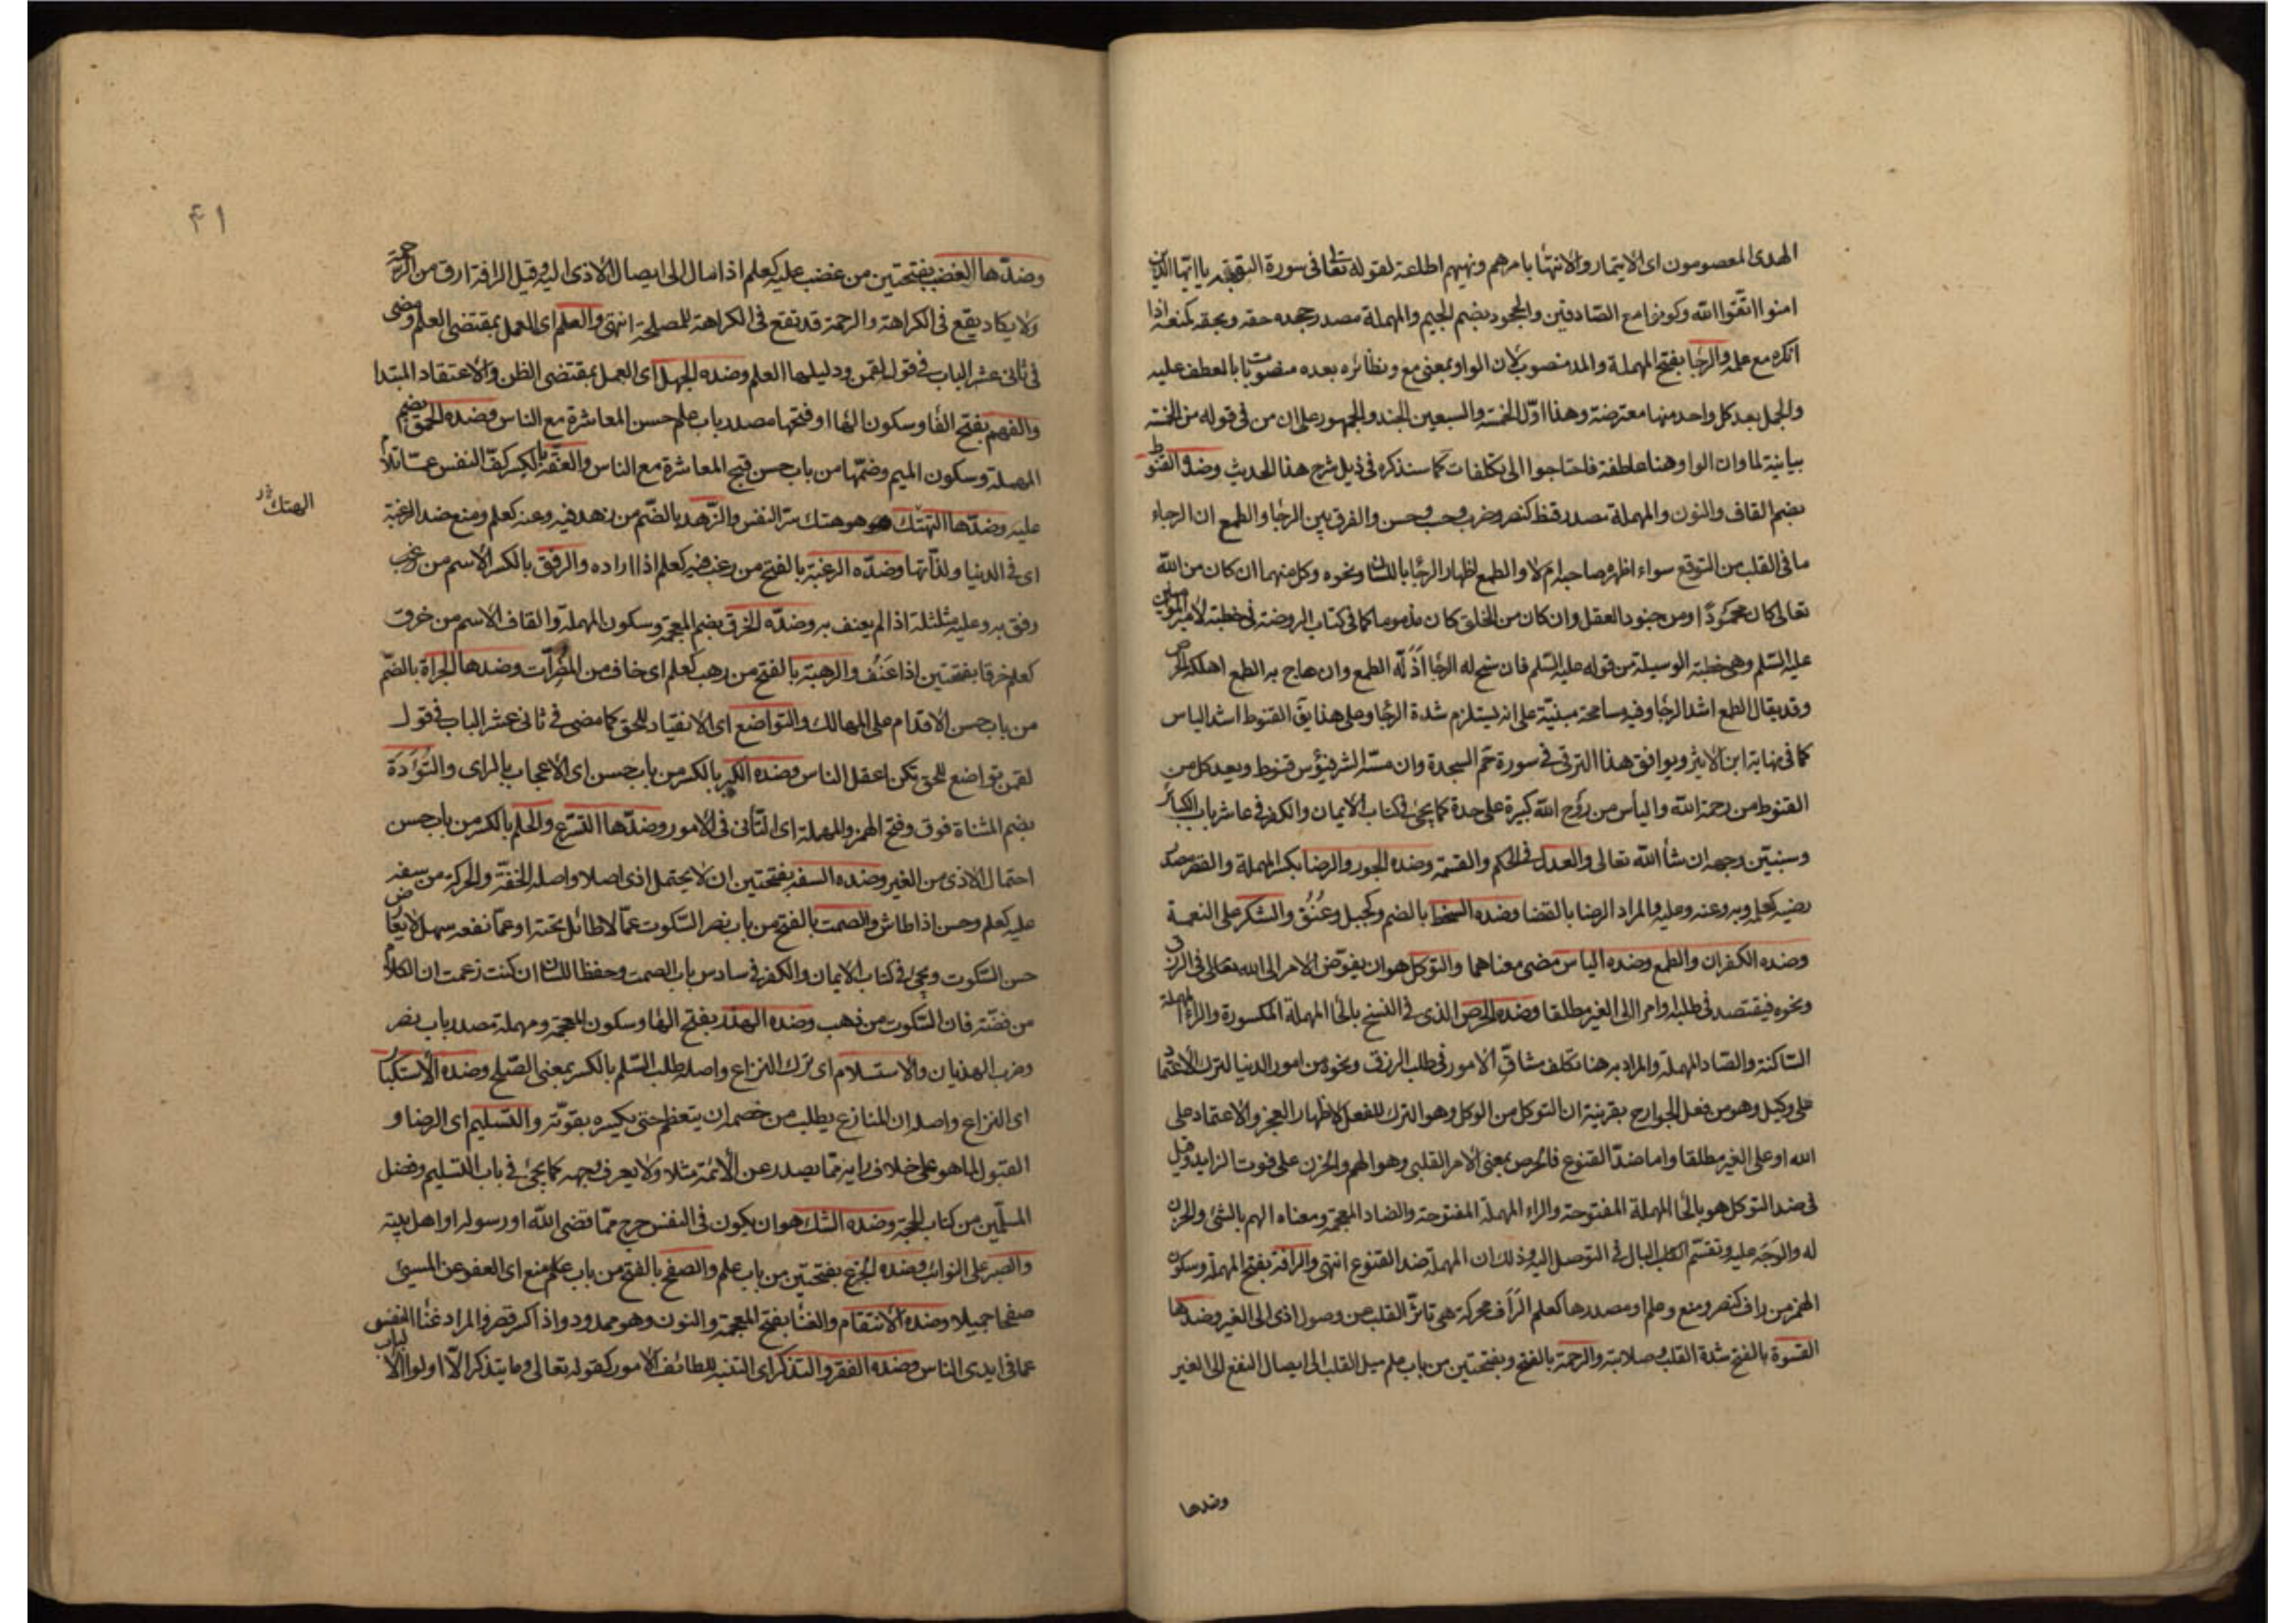 الهدى المعصومون اى الايتمار والانتهاء بامرهم ونهيهم اطاعة لقوله تعالى فى سورة التوبة يا ايها الذين
امنوا اتقوا الله وكونوا مع الصادقين والجحود بضم الجيم والمهملة مصدر جحده حقه وبحقه كمنعه اذا
انكره مع علمه والرجا بفتح المهملة والمد منصوب لان الواو بمعنى مع ونظائره بعده منصوبات بالعطف عليه
والجمل بعد كل واحد منها معترضة وهذا اول الخمسة والسبعين الجند والجمهور على ان من فى قوله من الخمسة
بيانية لما وان الواو هنا عاطفة فاحتاجوا الى تكلفات كما سنذكره فى ذيل شرح هذا الحديث وضده القنوط
بضم القاف والنون والمهملة مصدر قنط كنصر وضرب وحسب وحسن والفرق بين الرجا والطمع ان الرجاء
ما فى القلب من التوقع سواء اظهره صاحبه ام لا والطمع اظهار الرجا باللسان ونحوه وكل منهما ان كان من الله
تعالى كان محمودًا ومن جنود العقل وان كان من الخلق كان مذموما كما فى كتاب الروضة فى خطبة لامير المؤمنين
عليه السلم وهى خطبة الوسيلة من قوله عليه السلم فان سنح له الرجا اذله الطمع وان هاج به الطمع اهلكه الحرص
وقد يقال الطمع اشد الرجا وفيه مسامحة مبنية على انه يستلزم شدة الرجا وعلى هذا يق القنوط اشد الياس
كما فى نهاية ابن الاثير ويوافق هذا الترقى فى سورة حم السجدة وان مسه الشر فيؤس قنوط ويعد كل من
القنوط من رحمة الله والياس من روح الله كبيرة على حدة كما يجئ فى كتاب الايمان والكفر فى عاشر باب الكبائر
وسنبين وجهه ان شأ الله تعالى والعدل فى الحكم والقسمة وضده الجور والرضا بكسر المهملة والقصر مصدر
رضيه كعلم وبه وعنه وعليه والمراد الرضا بالقضا وضده السخط بالضم وكجبل وعُنُق والشكر على النعمة
وضده الكفران والطمع وضده الياس مضى معناهما والتوكل هو ان يفوض الامر الى الله تعالى فى الرزق
ونحوه فيقتصد فى طلبه وامر الى الغير مطلقا وضده الحرص الذى فى النسخ بالحا المهملة المكسورة والراء المهملة
الساكنة والصاد المهملة والمراد به هنا تكلف مشاق الامور فى طلب الرزق ونحوه من امور الدنيا لترك الاعتماد
على وكيل وهو من فعل الجوارح بقرينة ان التوكل من الوكل وهو الترك للفعل لاظهار العجز والاعتماد على
الله او على الغير مطلقا واما ضد القنوع فالحرص بمعنى الامر القلبى وهو الهم والحزن على فوت الزايد وقيل
فى ضد التوكل هو بالحا المهملة المفتوحة والراء المهملة المفتوحة والضاد المعجمة ومعناه الهم بالشئ والحزن
له والوجد عليه وتقسم البال فى التوصل اليه وذلك ان المهملة ضد القنوع انتهى والرافة بفتح المهملة وسكون
الهمز من راف كنصر ومنع وعلم او مصدرها كعلم الرَأف محركة هى تاثر القلب من وصول اذى الى الغير وضدها
القسوة بالفتح شدة القلب وصلابته والرحمة بالفتح وبفتحتين من باب علم ميل القلب الى ايصال النفع الى الغير
وضدها
۴۱
وضدها الغضب بفتحتين من غضب عليه كعلم اذا مال الى ايصال الاذى اليه وقيل الرافة ارق من الرحمة
ولا يكاد يقع فى الكراهة والرحمة قد تقع فى الكراهة للمصلحة انتهى والعلم اى العمل بمقتضى العلم ومضى
فى ثانى عشر الباب فى قول لقمن ودليلها العلم وضده الجهل اى العمل بمقتضى الظن والاعتقاد المبتدا
والفهم بفتح الفا وسكون الها او فتحها مصدر باب علم حسن المعاشرة مع الناس وضده الحمق بضم
المهملة وسكون الميم وضمها من باب حسن قبح المعاشرة مع الناس والعفة بالكسر كف النفس عما تلام
عليه وضدها التهتك هو هتك ستر النفس والزهد بالضم من زهد فيه وعنه كعلم ومنع ضد الرغبة
الهتك
اى فى الدنيا ولذاتها وضده الرغبة بالفتح من رغب فيه كعلم اذا اراده والرفق بالكسر الاسم من
رفق به وعليه مثلثة اذا لم يعنف به وضده الخرق بضم المعجمة وسكون المهملة والقاف الاسم من خرق
كعلم خرقا بفتحتين اذا عَنُفَ والرهبة بالفتح من رهب كعلم اى خاف من المضرات وضدها الجراة بالضم
من باب حسن الاقدام على المهالك والتواضع اى الانقياد للحق كما مضى فى ثانى عشر الباب فى قول
لقمن تواضع للحق تكن اعقل الناس وضده الكبر بالكسر من باب حسن اى الاعجاب بالراى والتُؤَدَة
بضم المثناة فوق وفتح الهمز والمهملة اى التأنى فى الامور وضدها التسرع والحلم بالكسر من باب حسن
احتمال الاذى من الغير وضده السفه بفتحتين ان لا يحتمل اذى اصلا واصله الخفة والحركة من سفه
عليه كعلم وحسن اذا طاش والصمت بالفتح من باب نصر السكوت عما لا طائل تحته او عما نفعه سهل لا يعارض
حسن السكوت ويجئ فى كتاب الايمان والكفر فى سادس باب الصمت وحفظ اللسان ان كنت زعمت ان الكلام
من فضة فان السكوت من ذهب وضده الهذر بفتح الها وسكون المعجمة ومهملة مصدر باب نصر
وضرب الهذيان والاستسلام اى ترك النزاع واصله طلب السلم بالكسر بمعنى الصلح وضده الاستكبار
اى النزاع واصله ان المنازع يطلب من خصمه ان يتعظم حتى يكسره بقوته والتسليم اى الرضا و
القبول لما هو على خلاف رايه مما يصدر عن الائمة مثلا ولا يعرف وجهه كما يجئ فى باب التسليم وفضل
المسلمين من كتاب الحجة وضده الشك هو ان يكون فى النفس حرج مما قضى الله او رسوله او اهل بيته
والصبر على النوائب وضده الجزع بفتحتين من باب علم والصفح بالفتح من باب منع اى العفو عن المسيئ
صفحا جميلا وضده الانتقام والغنا بفتح المعجمة والنون وهو ممدود واذا كسر قصر والمراد غنا النفس
عما فى ايدى الناس وضده الفقر والتذكر اى التنبه للطائف الامور كقوله تعالى وما يتذكر الا اولوا الالباب